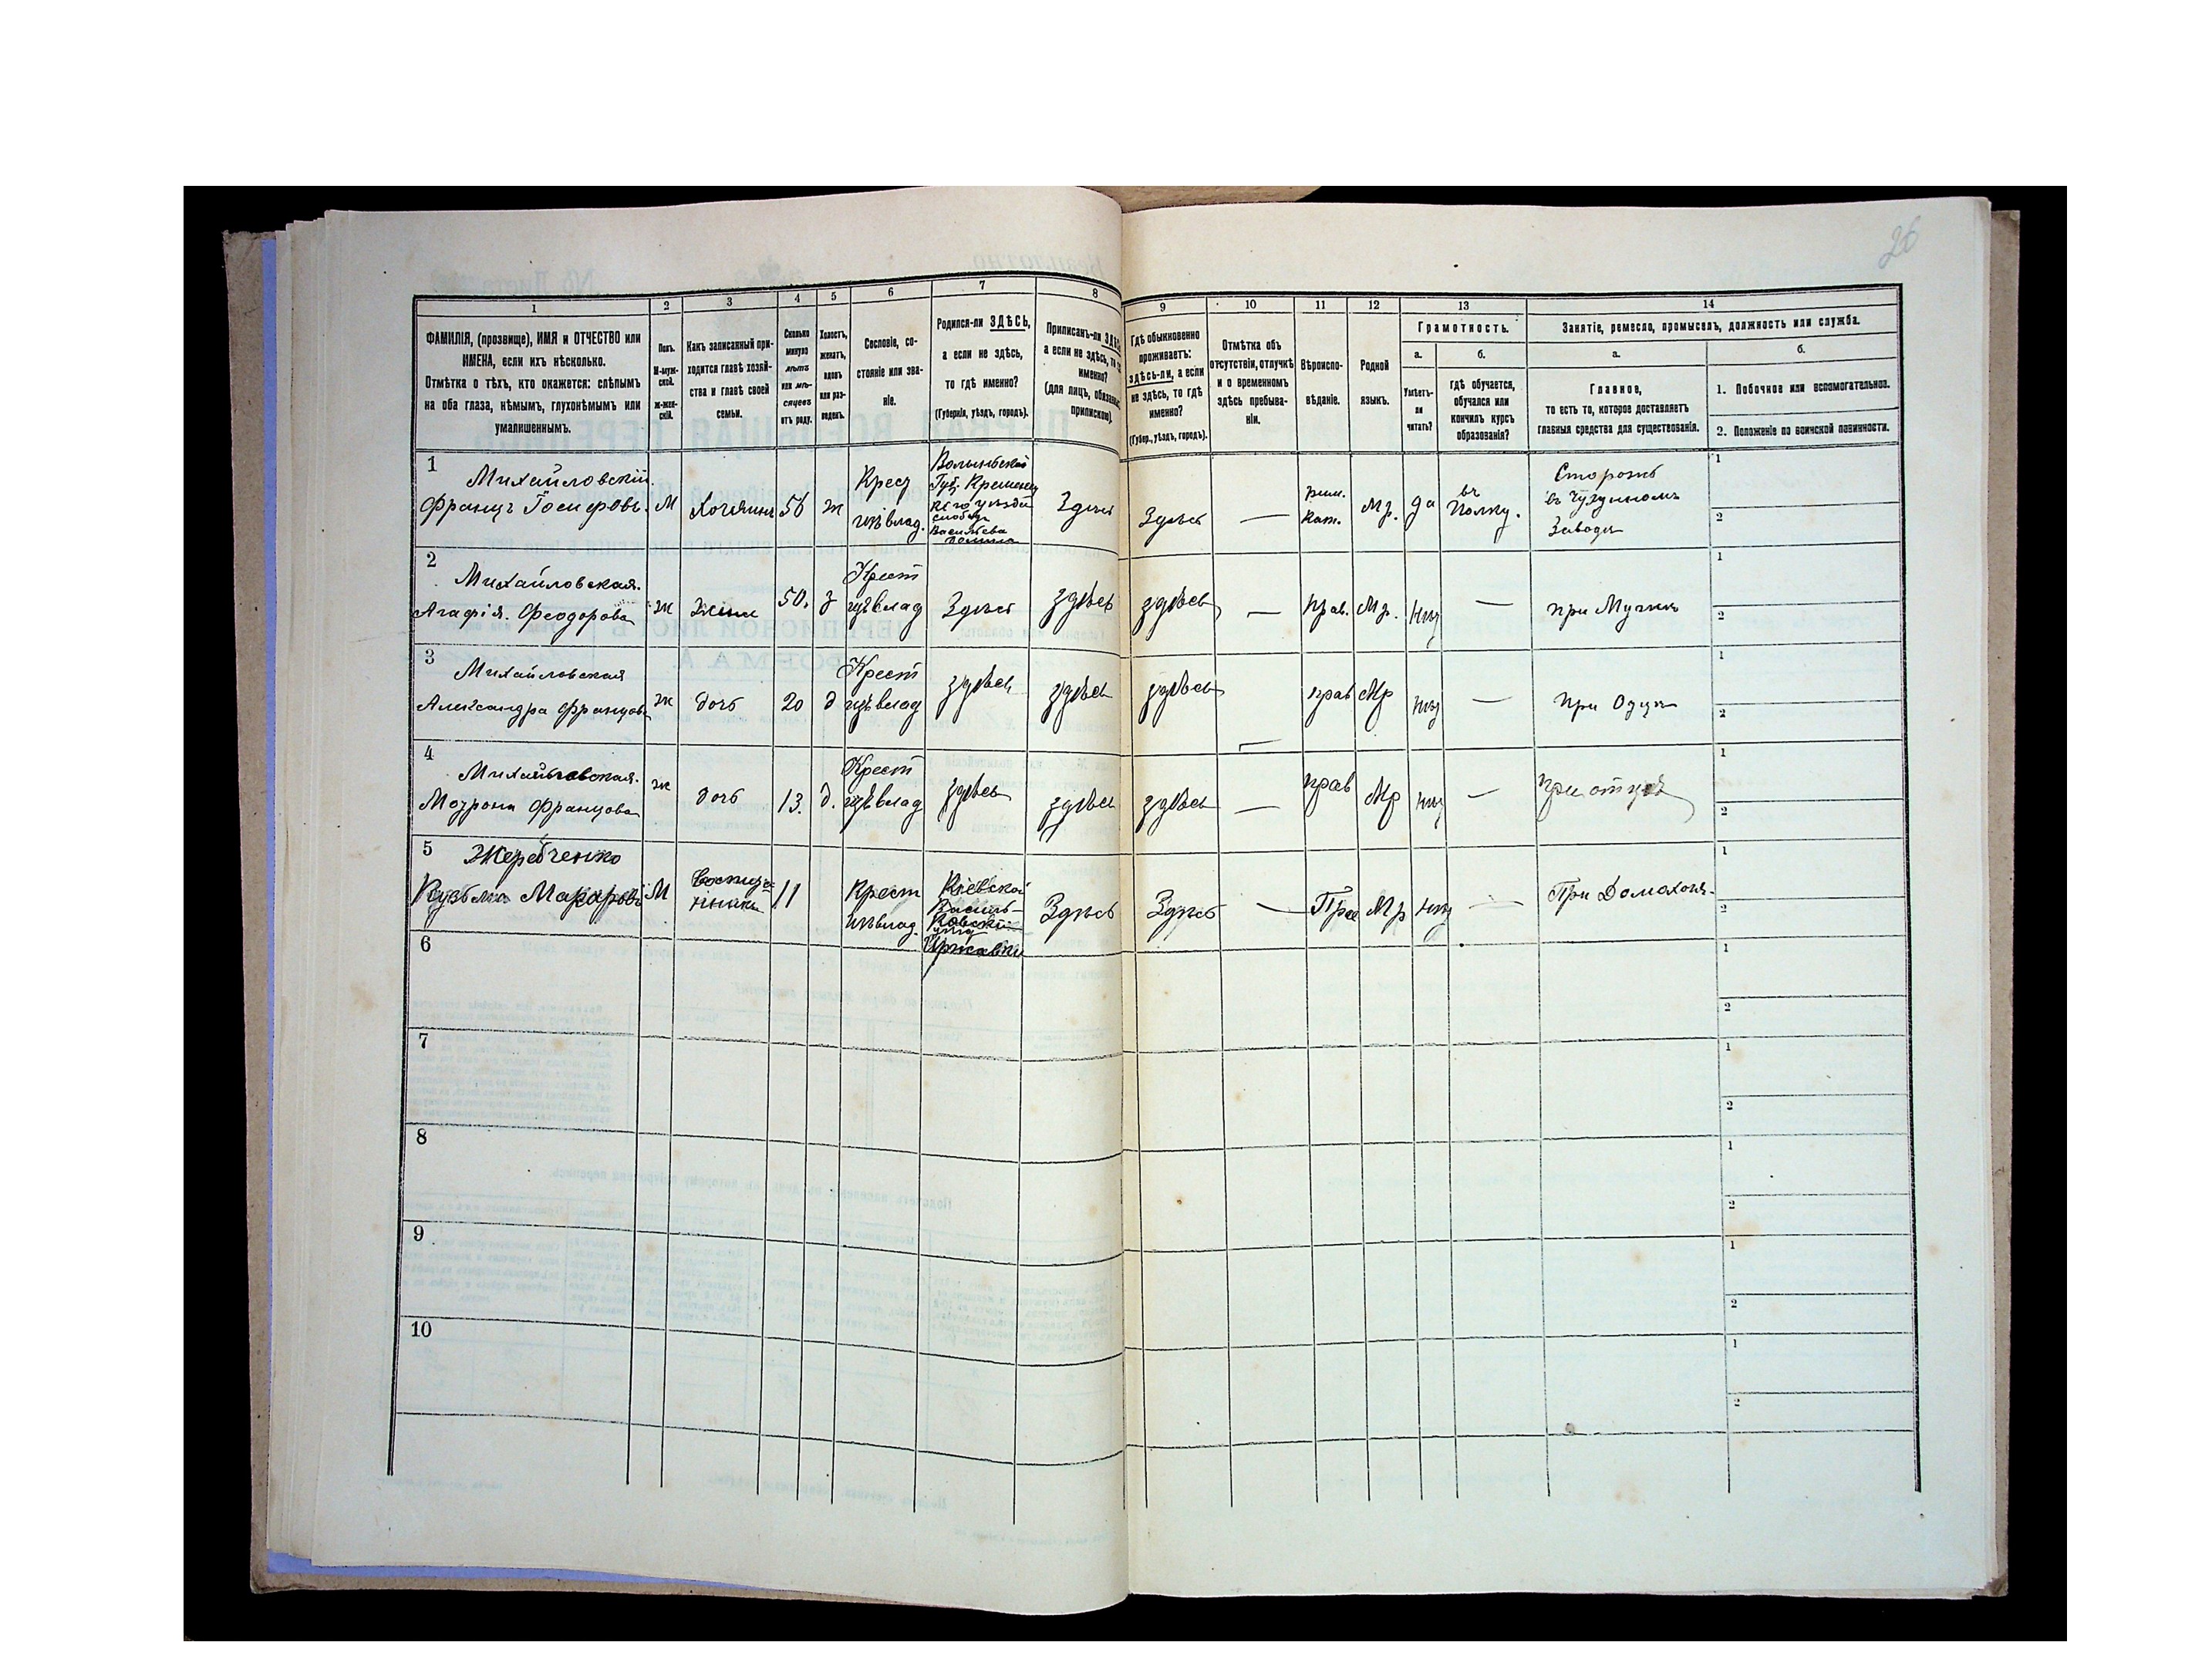 26
1
2
3
4
5
6
7
8
9
10
11
12
13
14
ФАМИЛІЯ, (прозвище), ИМЯ и ОТЧЕСТВО или
ИМЕНА, если ихъ нѣсколько.
Отмѣтка о тѣхъ, кто окажется: слѣпымъ
на оба глаза, нѣмымъ, глухонѣмымъ или
умалишеннымъ.
Полъ.
М-муж-
ской.
ж-жен-
скій.
Какъ записанный при-
ходится главѣ хозяй-
ства и главѣ своей
семьи.
Сколько
минуло
лѣтъ
или мѣ-
сяцевъ
отъ роду.
Холостъ,
женатъ,
вдовъ
или раз-
веденъ.
Сословіе, со-
стояніе или зва-
ніе.
Родился-ли ЗДѢСЬ,
а если не здѣсь,
то гдѣ именно?
(Губернія, уѣздъ, городъ).
Приписанъ-ли
а если не здѣсь, то
именно?
(для лицъ,
припискою).
Гдѣ обыкновенно
проживаетъ:
здѣсь-ли, а если
не здѣсь, то гдѣ
именно?
(Губер., уѣздъ, городъ).
Отмѣтка объ
отсутствіи, отлучкѣ
и о временномъ
здѣсь пребыва-
ніи.
Вѣроиспо-
вѣданіе.
Родной
языкъ.
Грамотность.
а.
Умѣетъ-
ли
читать?
б.
гдѣ обучается,
обучался или
кончилъ курсъ
образованія?
Занятіе, ремесло, промыселъ, должность или служба.
а.
Главное,
то есть то, которое доставляетъ
главныя средства для существованія.
б.
1. Побочное или вспомогательное.
2. Положеніе по воинской повинности.
1
Михайловскій
Францъ Іосифовъ.
М
Хозяинъ
56
ж
Крест
изъ влад.
Волынской
Губ. Кременец
каго уѣзда
слобода
Здѣсь
Здѣсь
—
рим.
кат.
Мр.
да
въ
Полку.
Сторожъ
въ Чугунномъ
Заводѣ
1
2
2
Михайловская
Агафія Феодорова
ж
жена
50.
з
Крест
изъ влад
Здѣсь
здѣсь
здѣсь
—
прав.
Мр.
нѣт
—
при Мужѣ
1
2
3
Михайловская
Александра Францова
ж
дочь
20
д
Крест
изъ влад
здѣсь
здѣсь
здѣсь
—
прав
Мр
нѣт
—
при Одцѣ
1
2
4
Михайловская
Мотрона Францова
ж
дочь
13.
д.
Крест
изъ влад
здѣсь
здѣсь
здѣсь
—
прав
Мр
нѣт
—
при отцѣ
1
2
5
Жеребченко
Кузьма Макаровъ
М
11
Крест
изъ влад.
Кіевской
Василь-
ковскій
Здѣсь
Здѣсь
—
Пра
Мр
нѣт
—
При Домохоз.
1
2
6
1
2
7
1
2
8
1
2
9
1
2
10
1
2